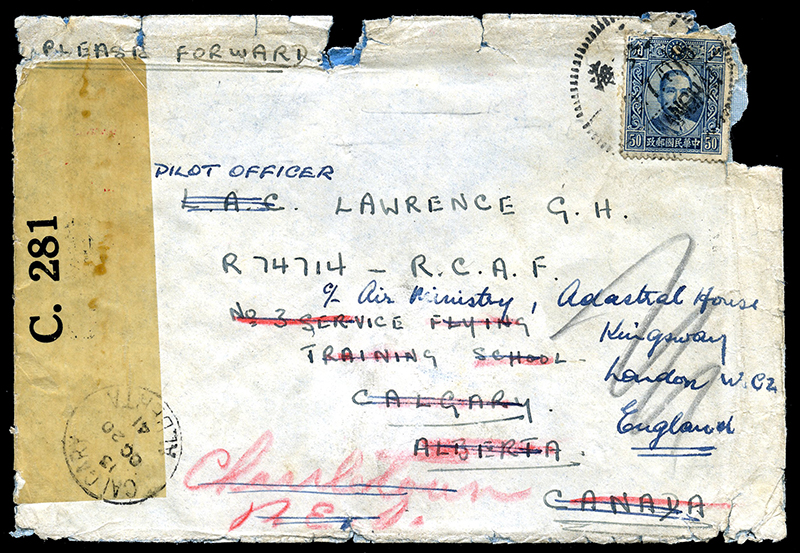 PLEASE FORWARD.
海
50 中華民國郵政 50
C. 281
PILOT OFFICER
L.A.C. LAWRENCE G. H.
R 74714 - R.C.A.F.
c/o Air Ministry, Adastral House
No 3 SERVICE FLYING
Kingsway
TRAINING SCHOOL
London W.C.2
CALGARY.
England
ALBERTA.
CALGARY
13
OC 20
41
ALBERTA
Charlottetown
P.E.I.
CANADA